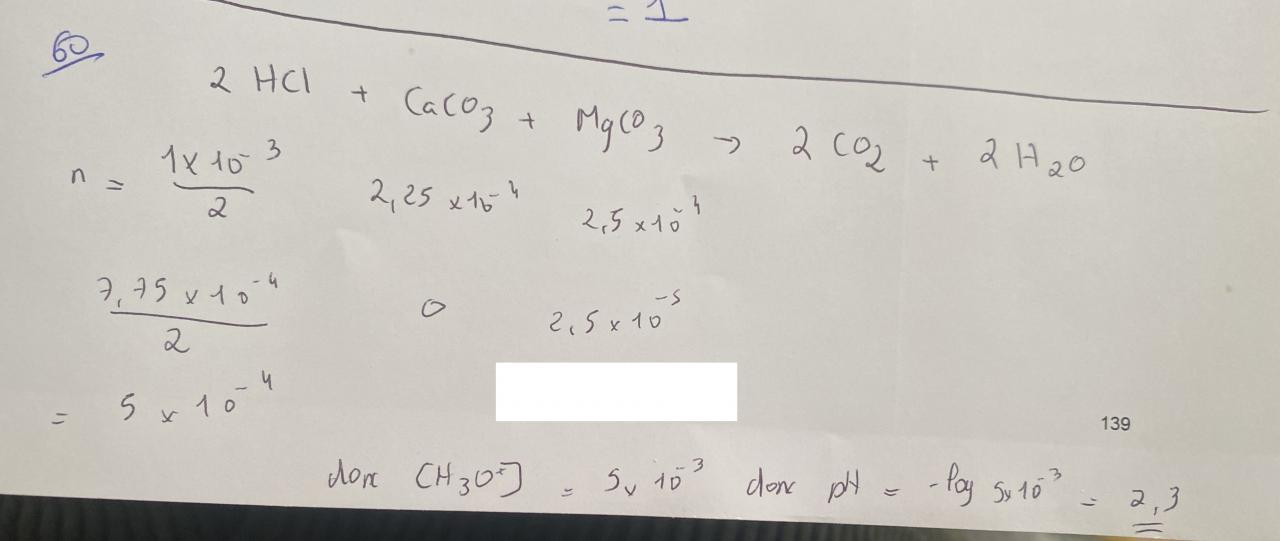 = 1
60
2 HCl + CaCO3 + MgCO3 → 2 CO2 + 2 H2O
n = 1 x 10⁻³ / 2 2,25 x 10⁻⁴ 2,5 x 10⁻⁴
7,75 x 10⁻⁴ / 2 0 2,5 x 10⁻⁵
= 5 x 10⁻⁴
139
donc [H3O+] = 5x 10⁻³ donc pH = -log 5x10⁻³ = 2,3